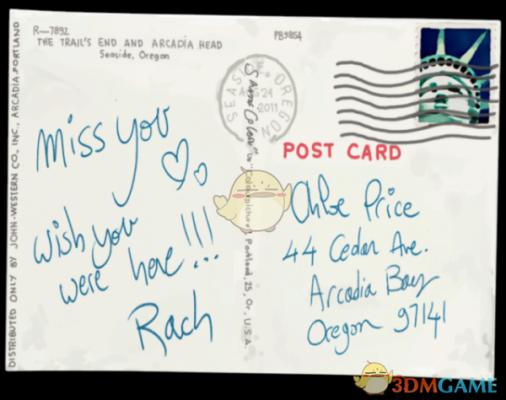 R-7892
THE TRAIL'S END AND ARCADIA HEAD
Seaside, Oregon
PB9854
DISTRIBUTED ONLY BY JOHN-WESTERN CO., INC., ARCADIA, PORTLAND
SEASIDE OREGON
24
2011
Miss you
wish you
were here!!!
Rach
Portland, 25, Or., U.S.A.
POST CARD
Chloe Price
44 Cedar Ave.
Arcadia Bay
Oregon 97141
3DMGAME